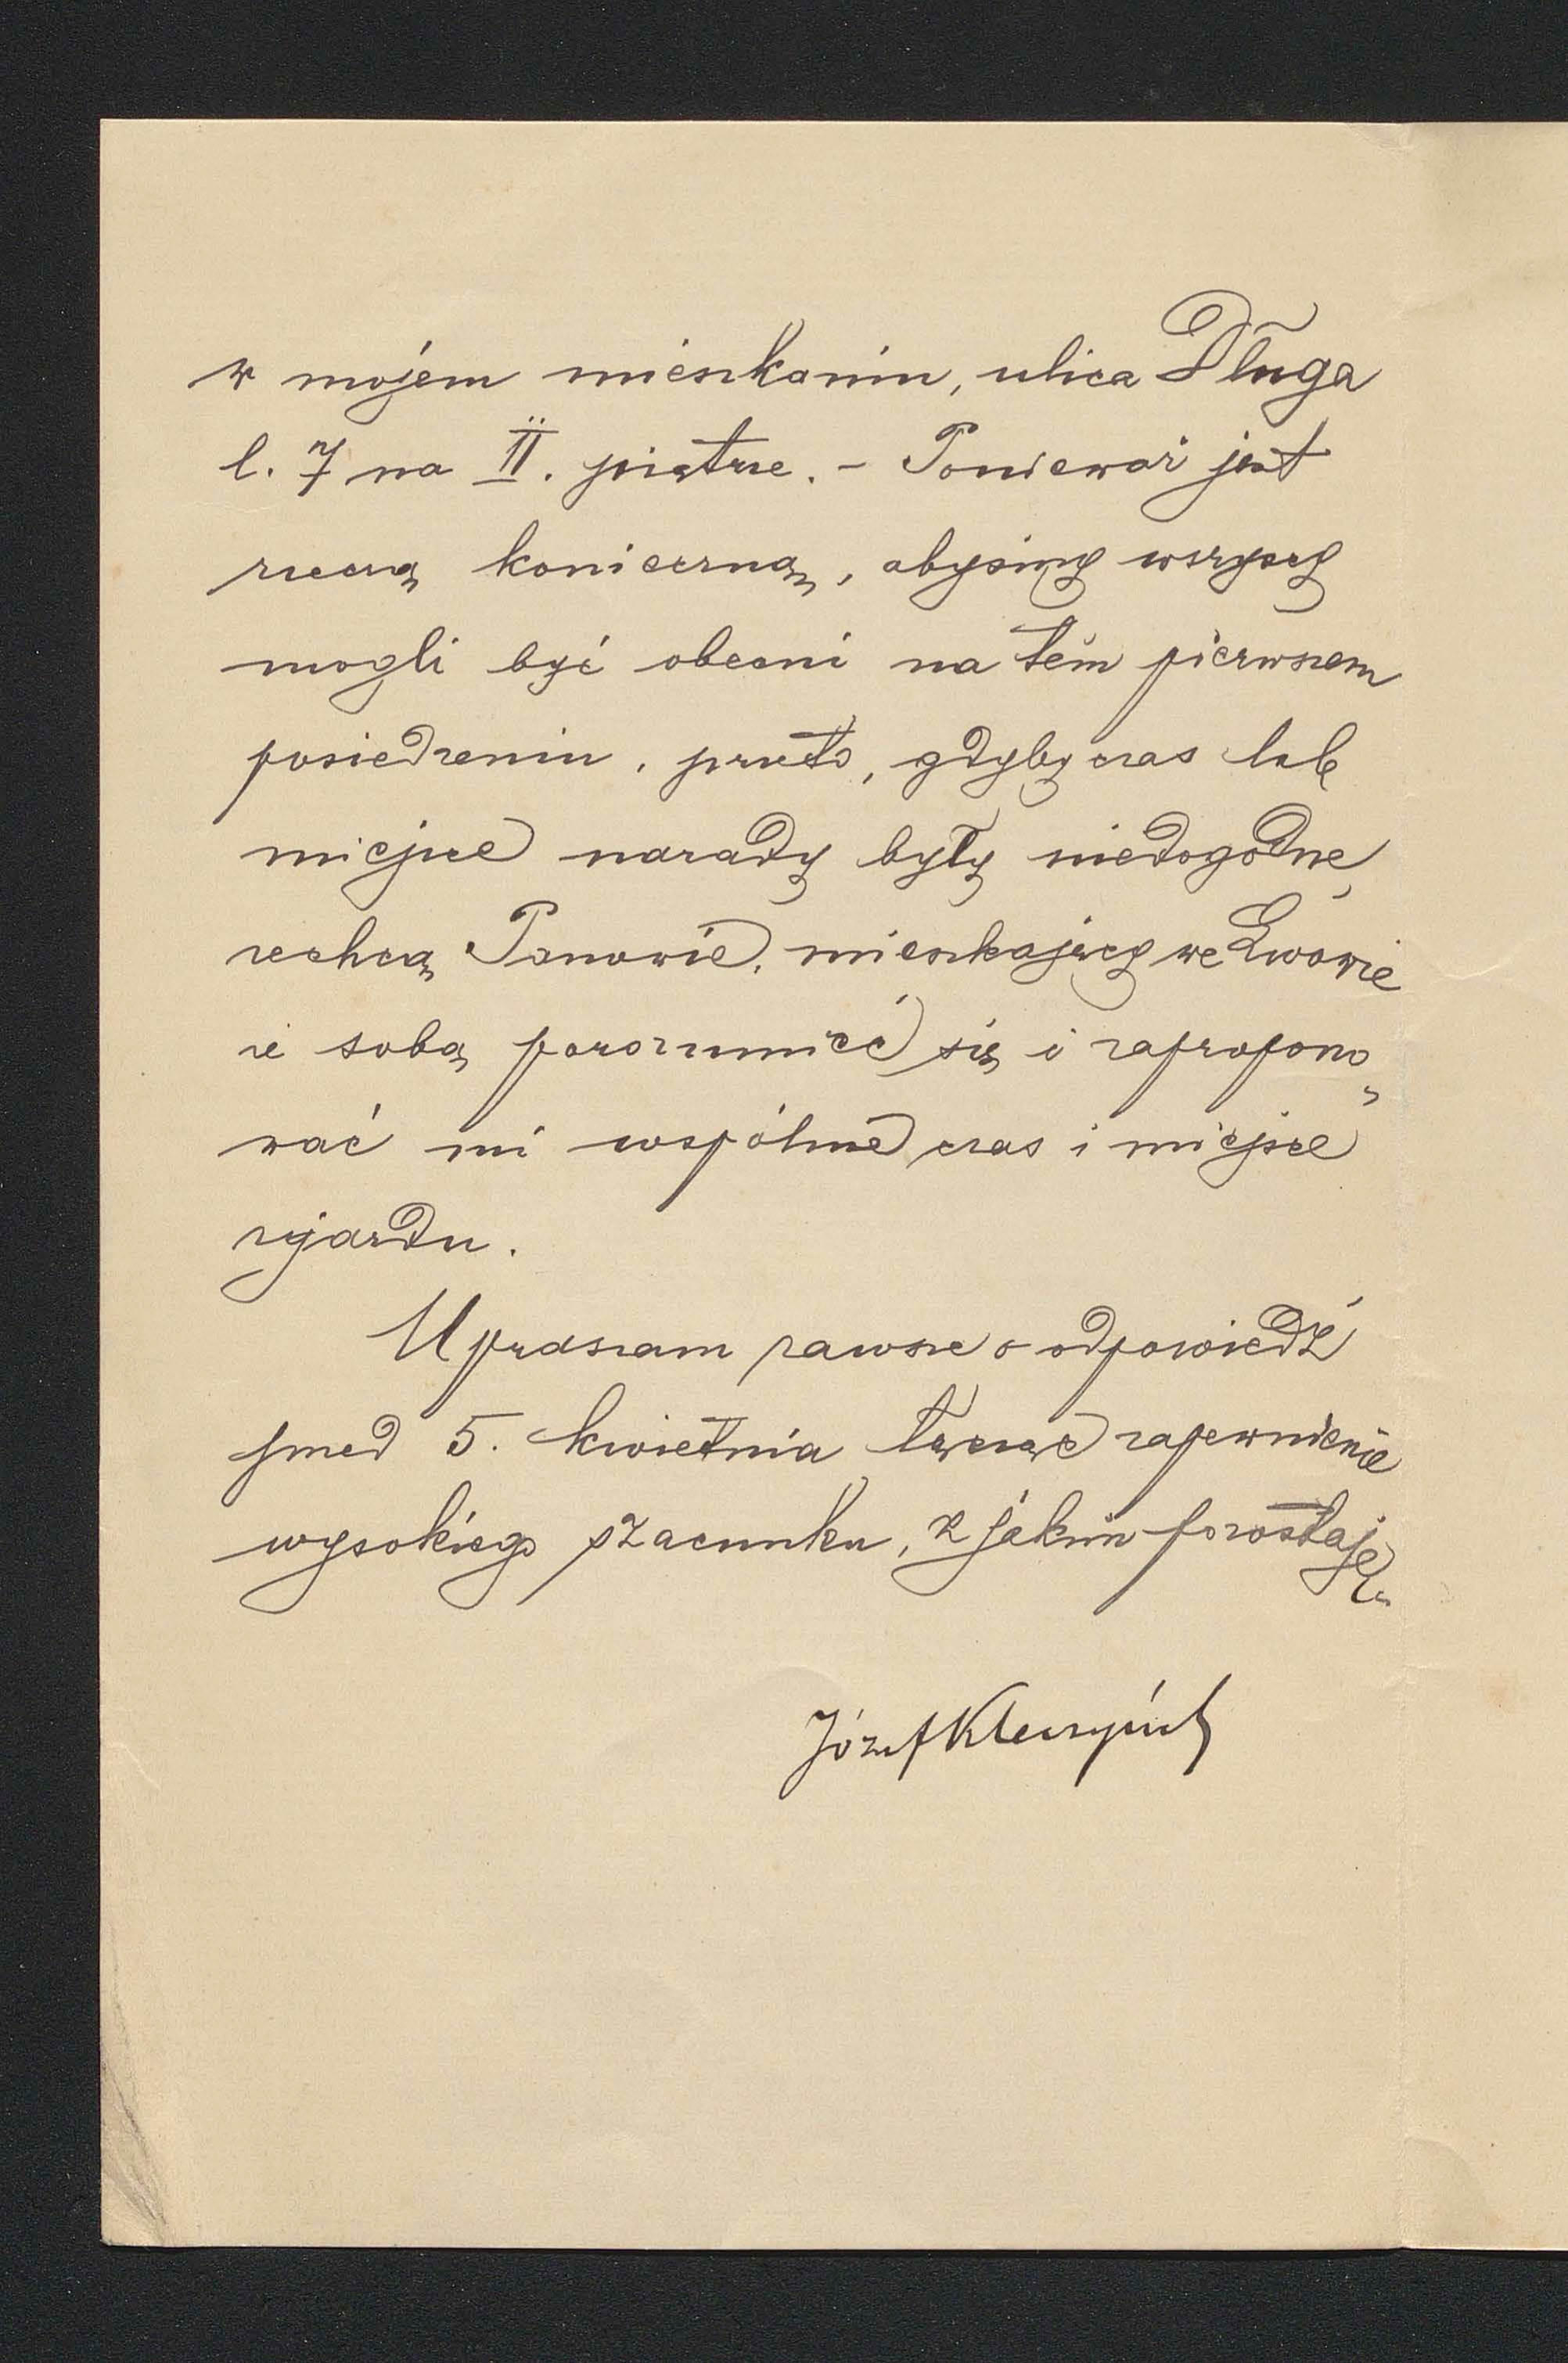 w mojém mieszkaniu, ulica Długa
l. 7 na II. piętrze. – Ponieważ jest
rzeczą konieczną, abyśmy wszyscy
mogli być obecni na tém pierwszem
posiedzeniu, przeto, gdyby czas lub
miejsce narady były niedogodne,
zechcą Panowie, mieszkający we Lwowie
ze sobą porozumieć się i zapropono-
wać mi wspólne czas i miejsce
zjazdu.
Upraszam zawsze o odpowiedź
przed 5. kwietnia łącząc zapewnienie
wysokiego szacunku, z jakim pozostaję
Józef Kleczyński